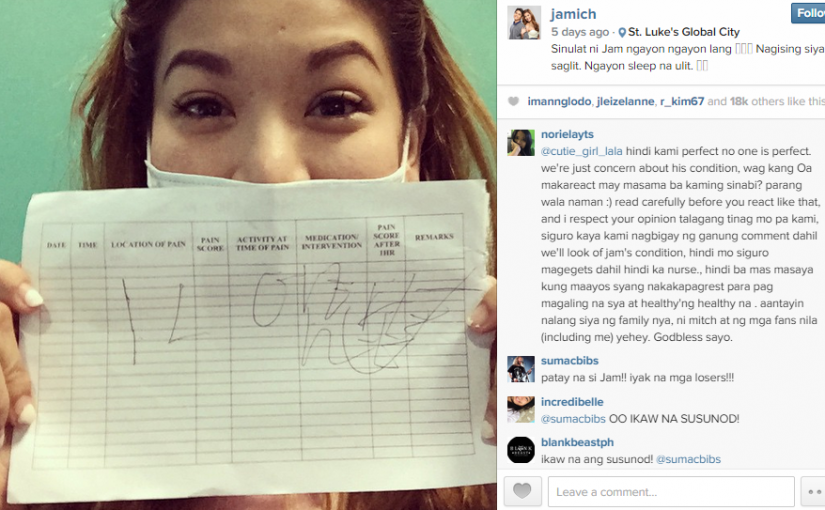 DATE TIME LOCATION OF PAIN PAIN SCORE ACTIVITY AT TIME OF PAIN MEDICATION/ INTERVENTION PAIN SCORE AFTER 1HR REMARKS
jamich
Follo
5 days ago · St. Luke's Global City
Sinulat ni Jam ngayon ngayon lang Nagising siya
saglit. Ngayon sleep na ulit.
imannglodo, jleizelanne, r_kim67 and 18k others like this
norielayts
@cutie_girl_lala hindi kami perfect no one is perfect.
we're just concern about his condition, wag kang Oa
makareact may masama ba kaming sinabi? parang
wala naman :) read carefully before you react like that,
and i respect your opinion talagang tinag mo pa kami,
siguro kaya kami nagbigay ng ganung comment dahil
we'll look of jam's condition, hindi mo siguro
magegets dahil hindi ka nurse., hindi ba mas masaya
kung maayos syang nakakapagrest para pag
magaling na sya at healthy'ng healthy na . aantayin
nalang siya ng family nya, ni mitch at ng mga fans nila
(including me) yehey. Godbless sayo.
sumacbibs
patay na si Jam!! iyak na mga losers!!!
incredibelle
@sumacbibs OO IKAW NA SUSUNOD!
blankbeastph
ikaw na ang susunod! @sumacbibs
Leave a comment...